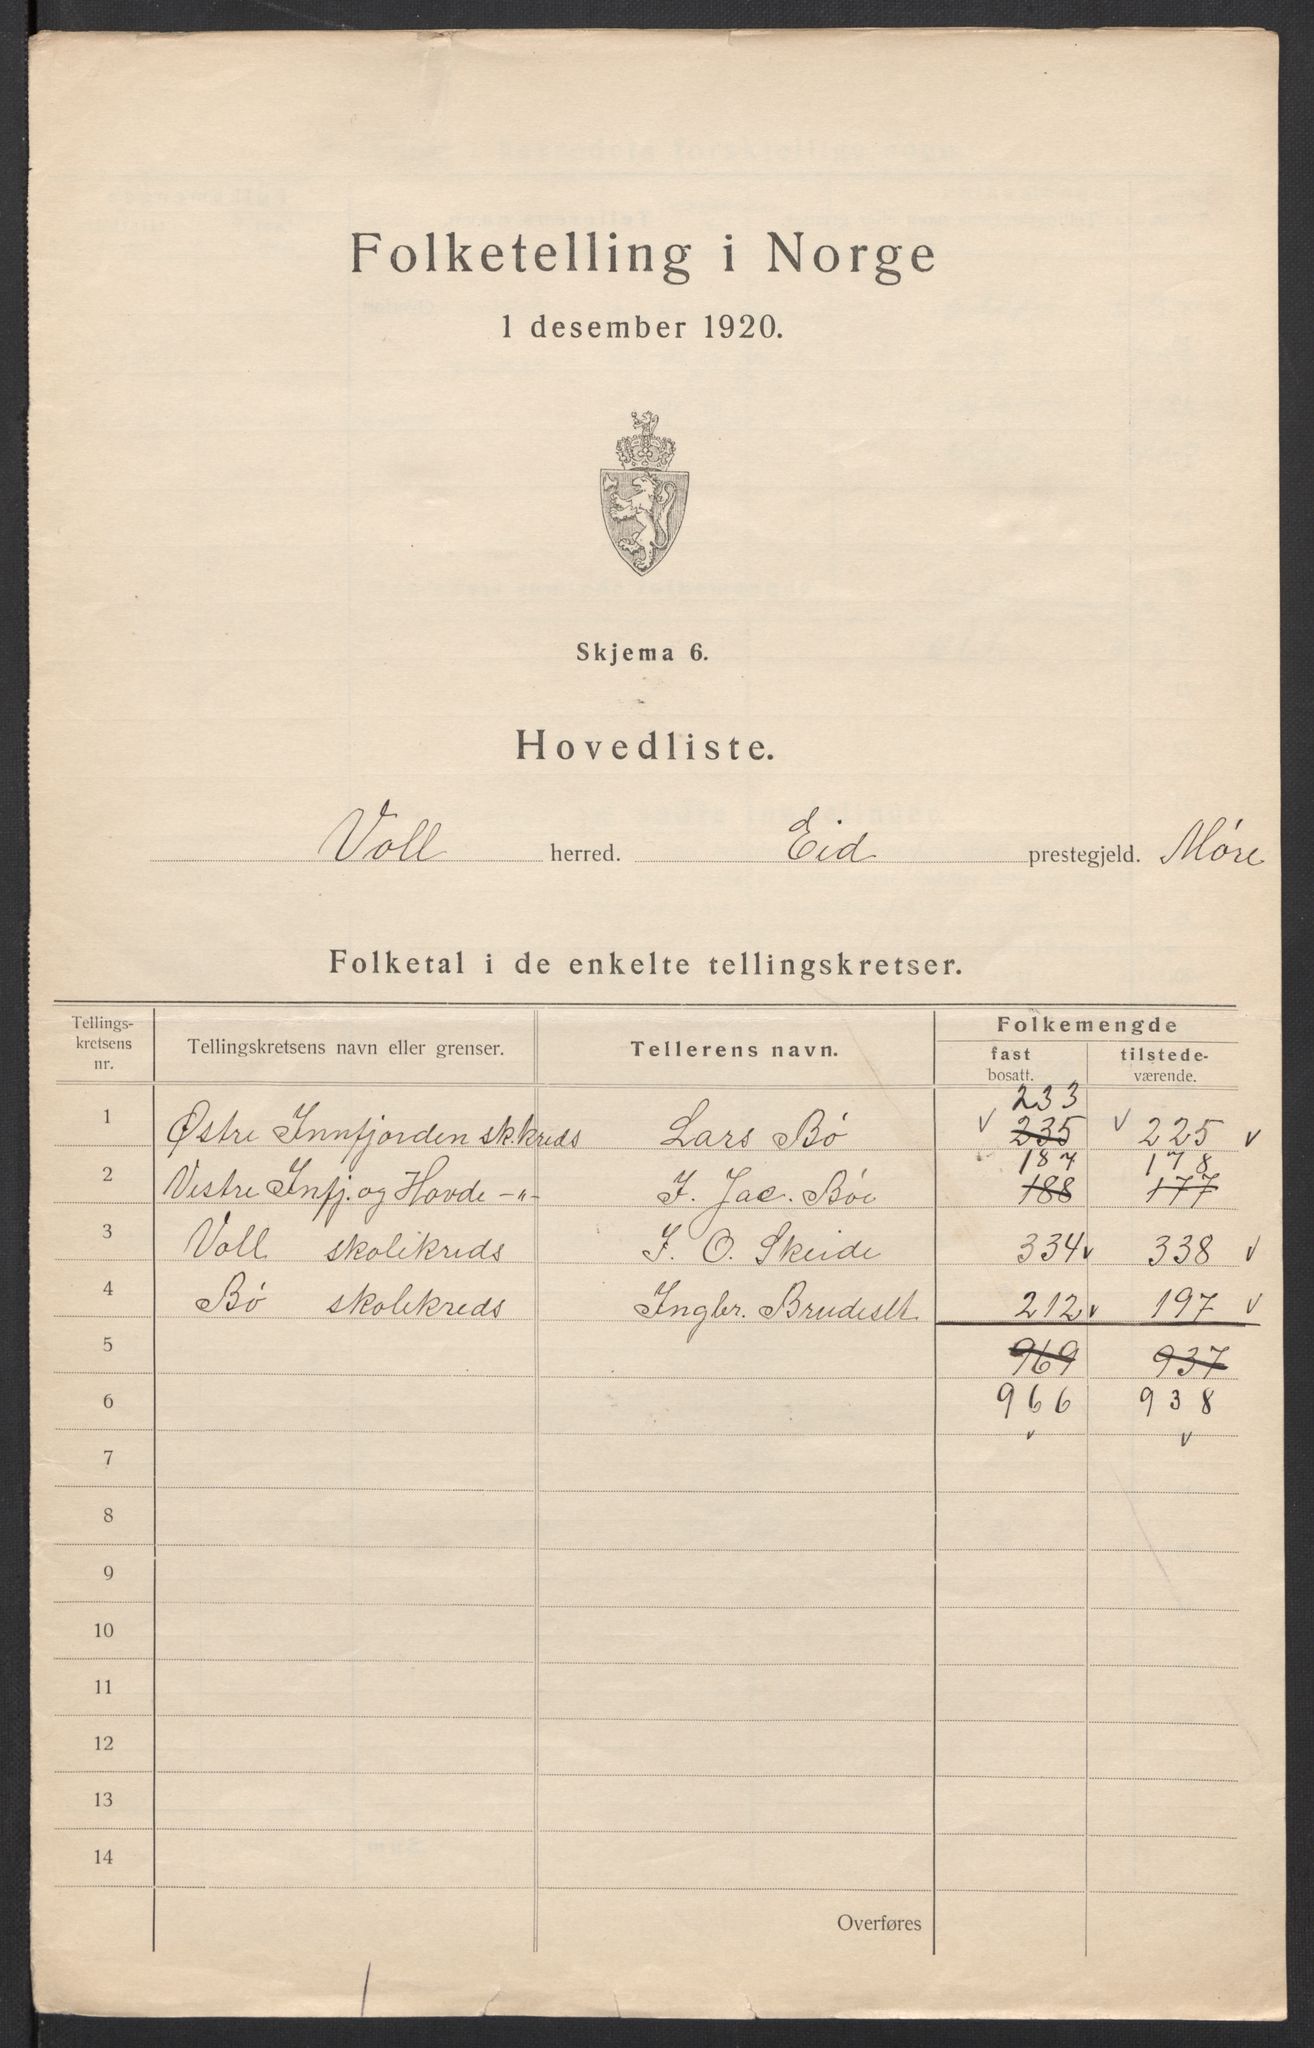 Folketelling i Norge
1 desember 1920.
Skjema 6.
Hovedliste.
Voll herred. Eid prestegjeld. Møre
Folketal i de enkelte tellingskretser.
Tellings-
kretsens
nr.
Tellingskretsens navn eller grenser.
Tellerens navn.
Folkemengde
fast
bosatt.
tilstede-
værende.
233
1 Østre Innfjorden sk.kreds Lars Bø v 235 v 225 v
187 178
2 Vestre Infj. og Hovde -"- J. Jac. Bøe 188 177
3 Voll skolekreds J. O. Skeide 334 v 338 v
4 Bø skolekreds Ingbr. Brudeslt 212 v 197 v
5 969 937
6 966 938
v v
7
8
9
10
11
12
13
14
Overføres